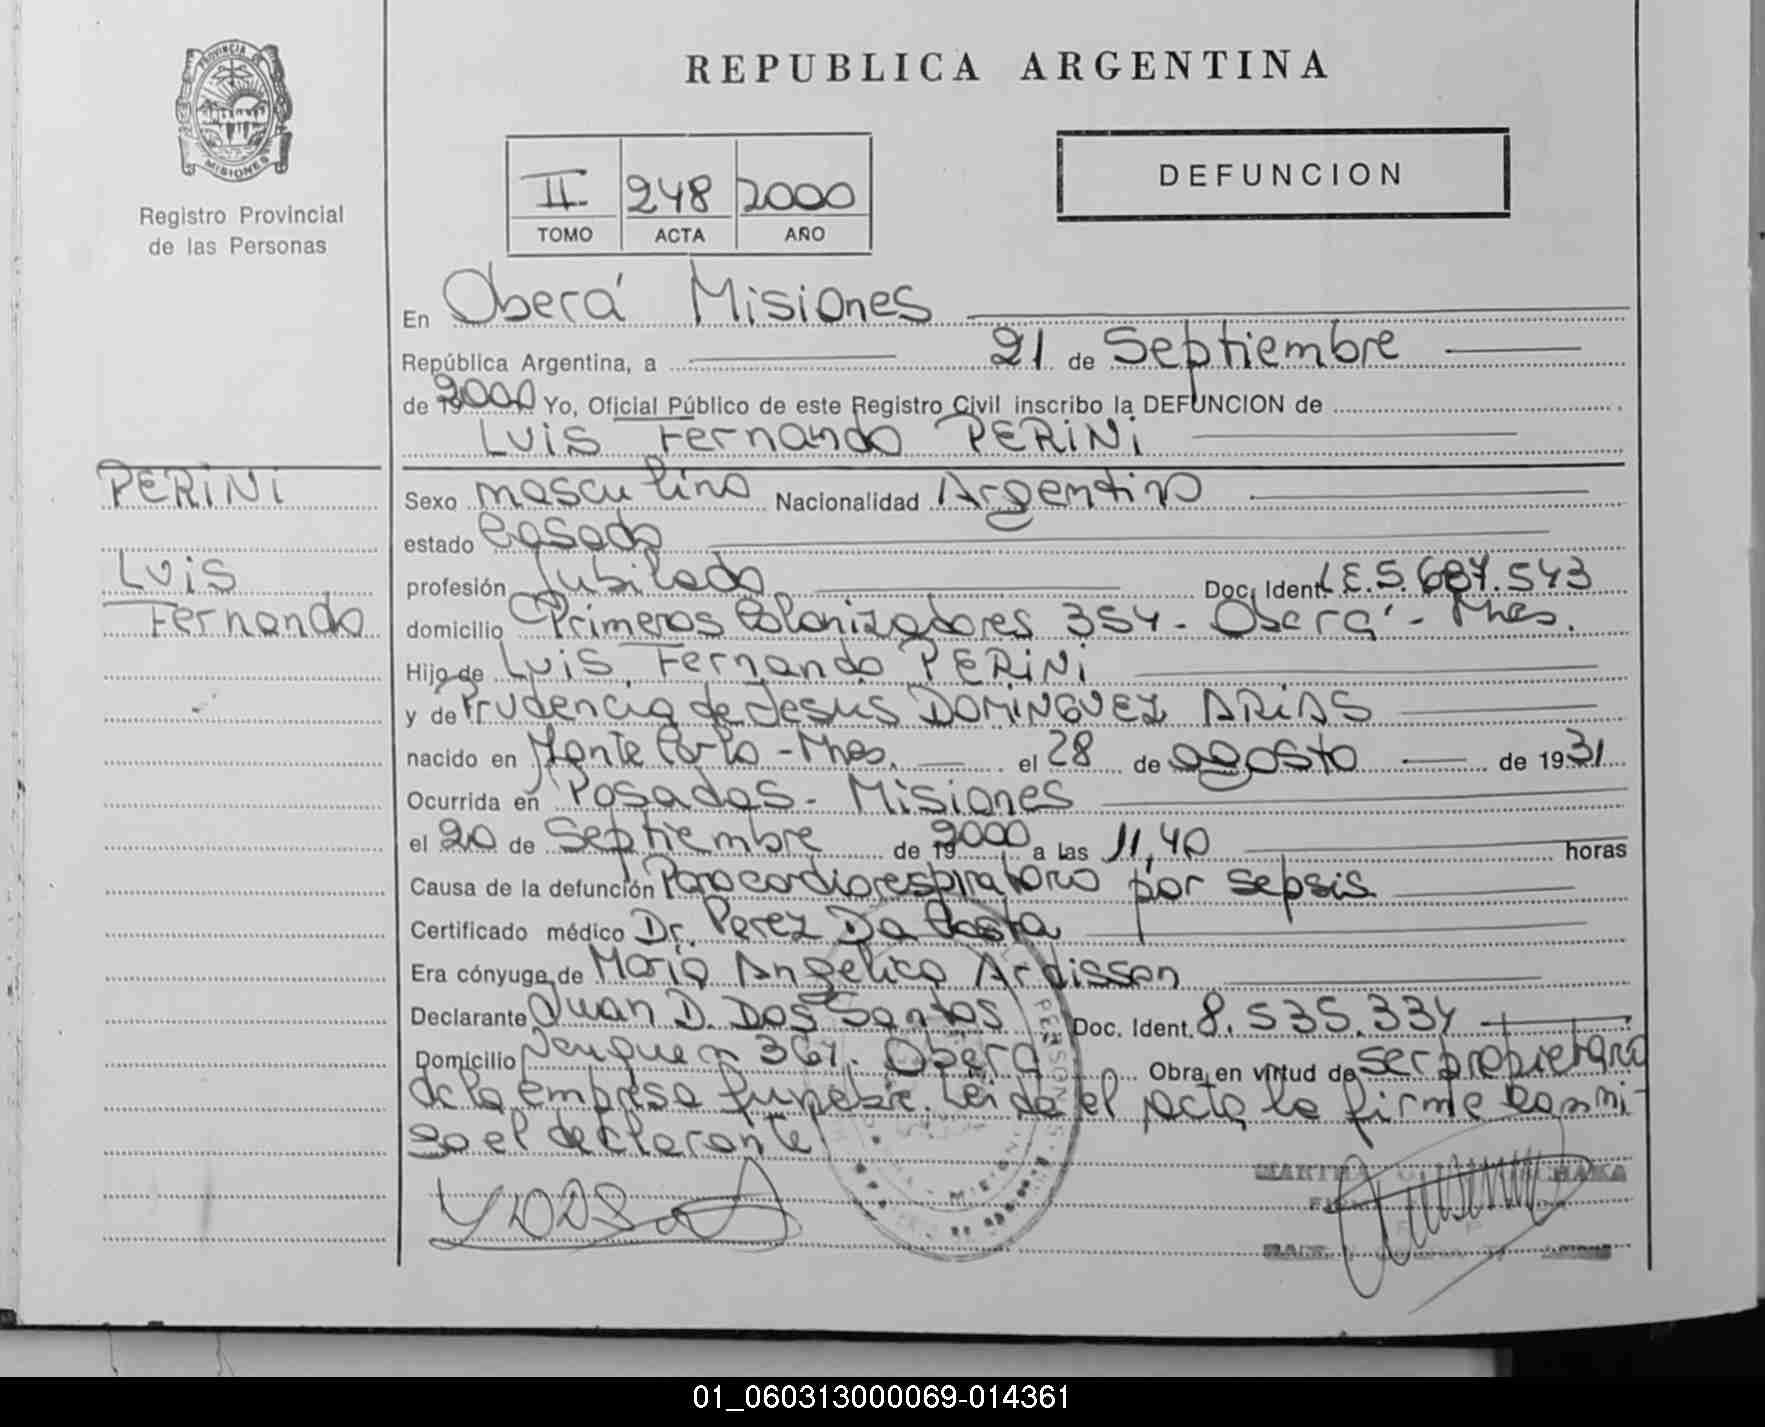 PROVINCIA DE
MISIONES
Registro Provincial
de las Personas
REPUBLICA ARGENTINA
II 248 2000
TOMO ACTA AÑO
DEFUNCION
En Oberá Misiones
República Argentina, a 21 de Septiembre
de 19 2000 Yo, Oficial Público de este Registro Civil inscribo la DEFUNCION de
Luis Fernando PERINI
PERINI
Luis
Fernando
Sexo masculino Nacionalidad Argentino
estado Casado
profesión Jubilado Doc. Ident. L.E. 5.687.543
domicilio Primeros Colonizadores 354 - Oberá - Mnes.
Hijo de Luis Fernando PERINI
y de Prudencia de Jesus DOMINGUEZ ARIAS
nacido en Monte Carlo - Mnes. el 28 de agosto de 1931
Ocurrida en Posadas - Misiones
el 20 de Septiembre de 19 2000 a las 11,40 horas
Causa de la defunción Parocardiorespiratorio por sepsis
Certificado médico Dr. Perez Da Costa
Era cónyuge de Maria Angelica Ardisson
Declarante Juan D. Dos Santos Doc. Ident. 8.535.334
Domicilio Neuquen 367. Oberá Obra en virtud de ser propietario
de la empresa funebre. Leida el acta la firme conmi-
go el declarante
01_060313000069-014361